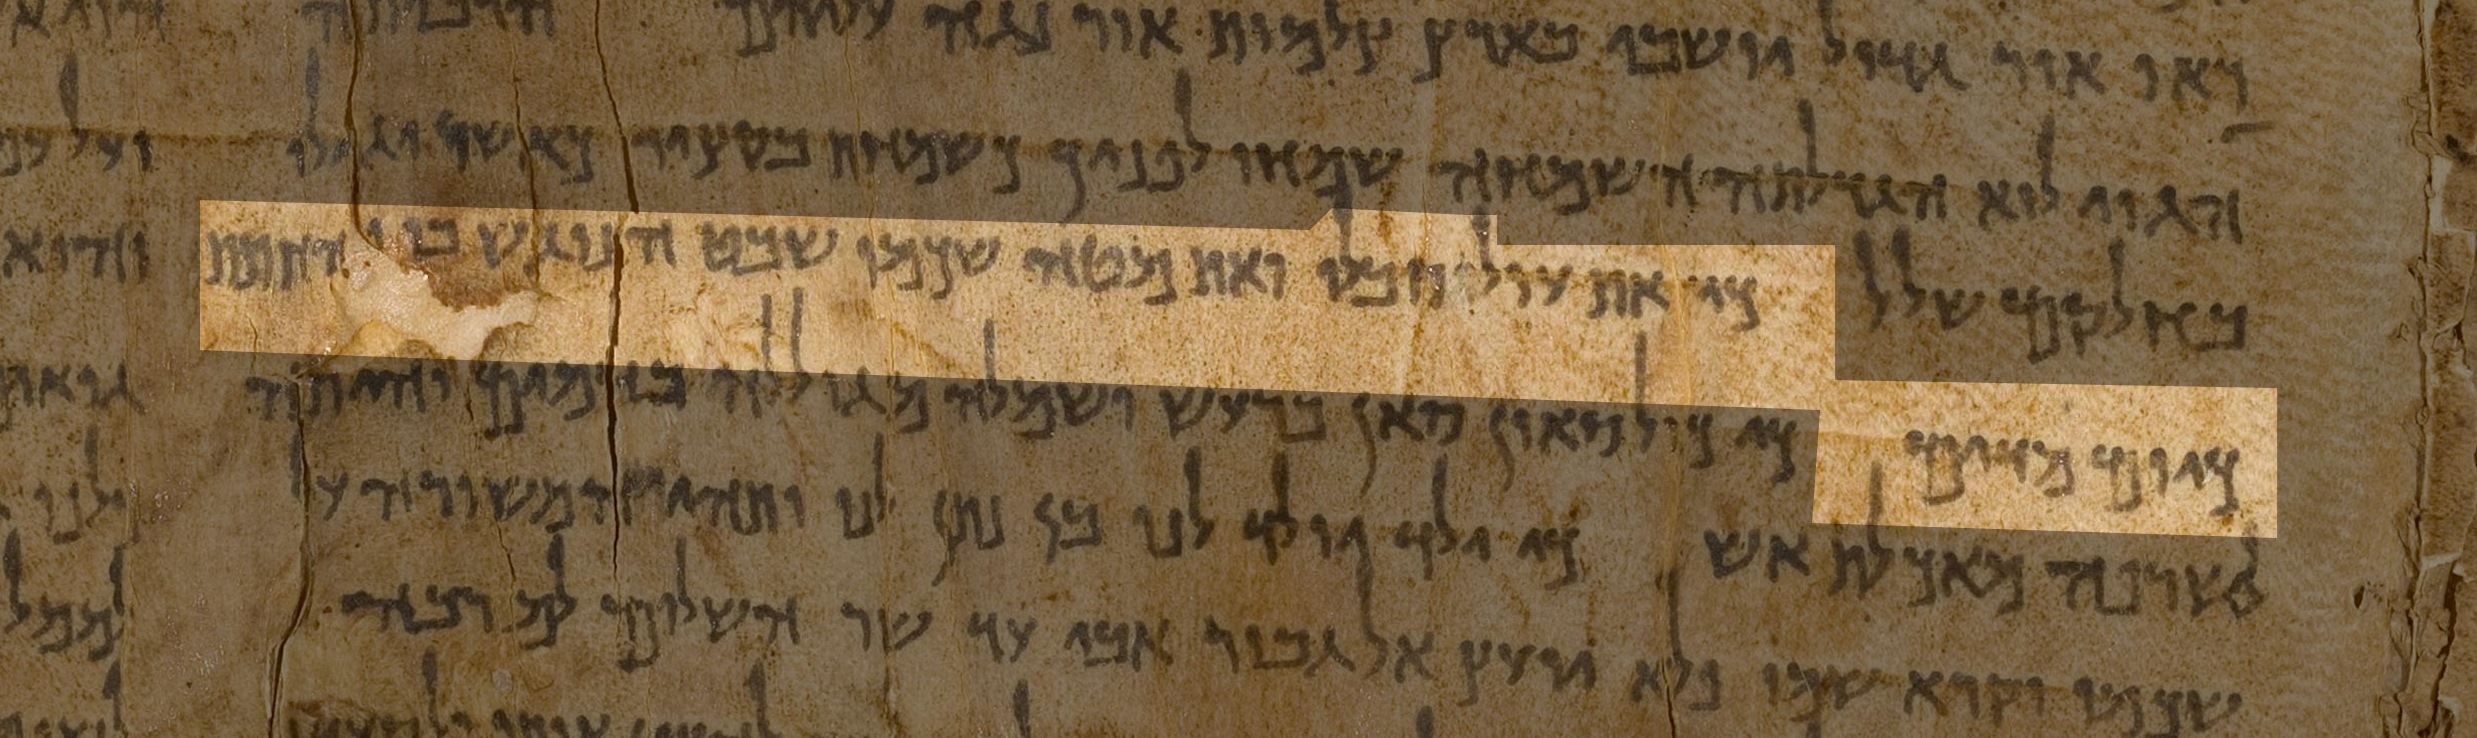 ראו אור גדול יושבי בארץ צלמות אור נגה עליהם הרביתה
הגוי לוא הגדלתה השמחה שמחו לפניך כשמחת בקציר כאשר יגילו
בחלקם שלל כי את עול סבלו ואת מטה שכמו שבט הנוגש בו החתת
כיום מדים כי כול סאון סאן ברעש ושמלה מגוללה בדמים והיתה
לשרפה מאכלת אש כי ילד יולד לנו בן נתן לנו ותהי המשורה על
שכמו וקרא שמו פלא יועץ אל גבור אבי עד שר השלום למרבה